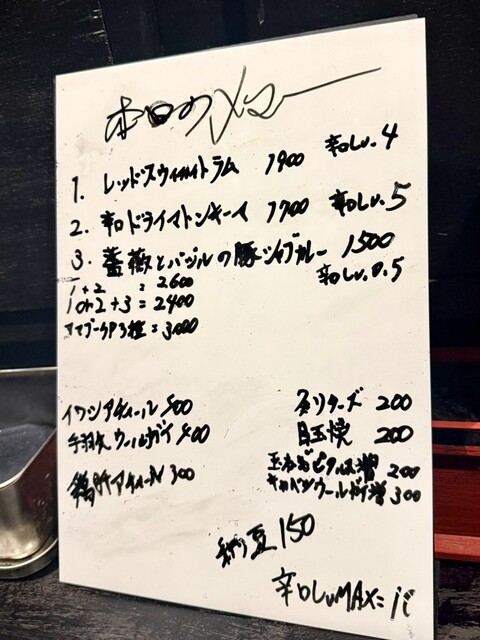 本日のメニュー
1. レッドスウィートラム 1900 辛口Lv.4
2. 辛口ドライマトンキーマ 1700 辛口Lv.5
3. 薔薇とバジルの豚ジャブカレー 1500
辛口Lv.0.5
1+2 = 2600
1or2+3 = 2400
3種 = 3000
イワシアチャール 500
手羽元ウールガイ 400
鶏肝アチャール 300
炙りチーズ 200
目玉焼 200
玉ねぎピクルス増 200
キャベツウールガイ増 300
納豆 150
辛口LvMAX=